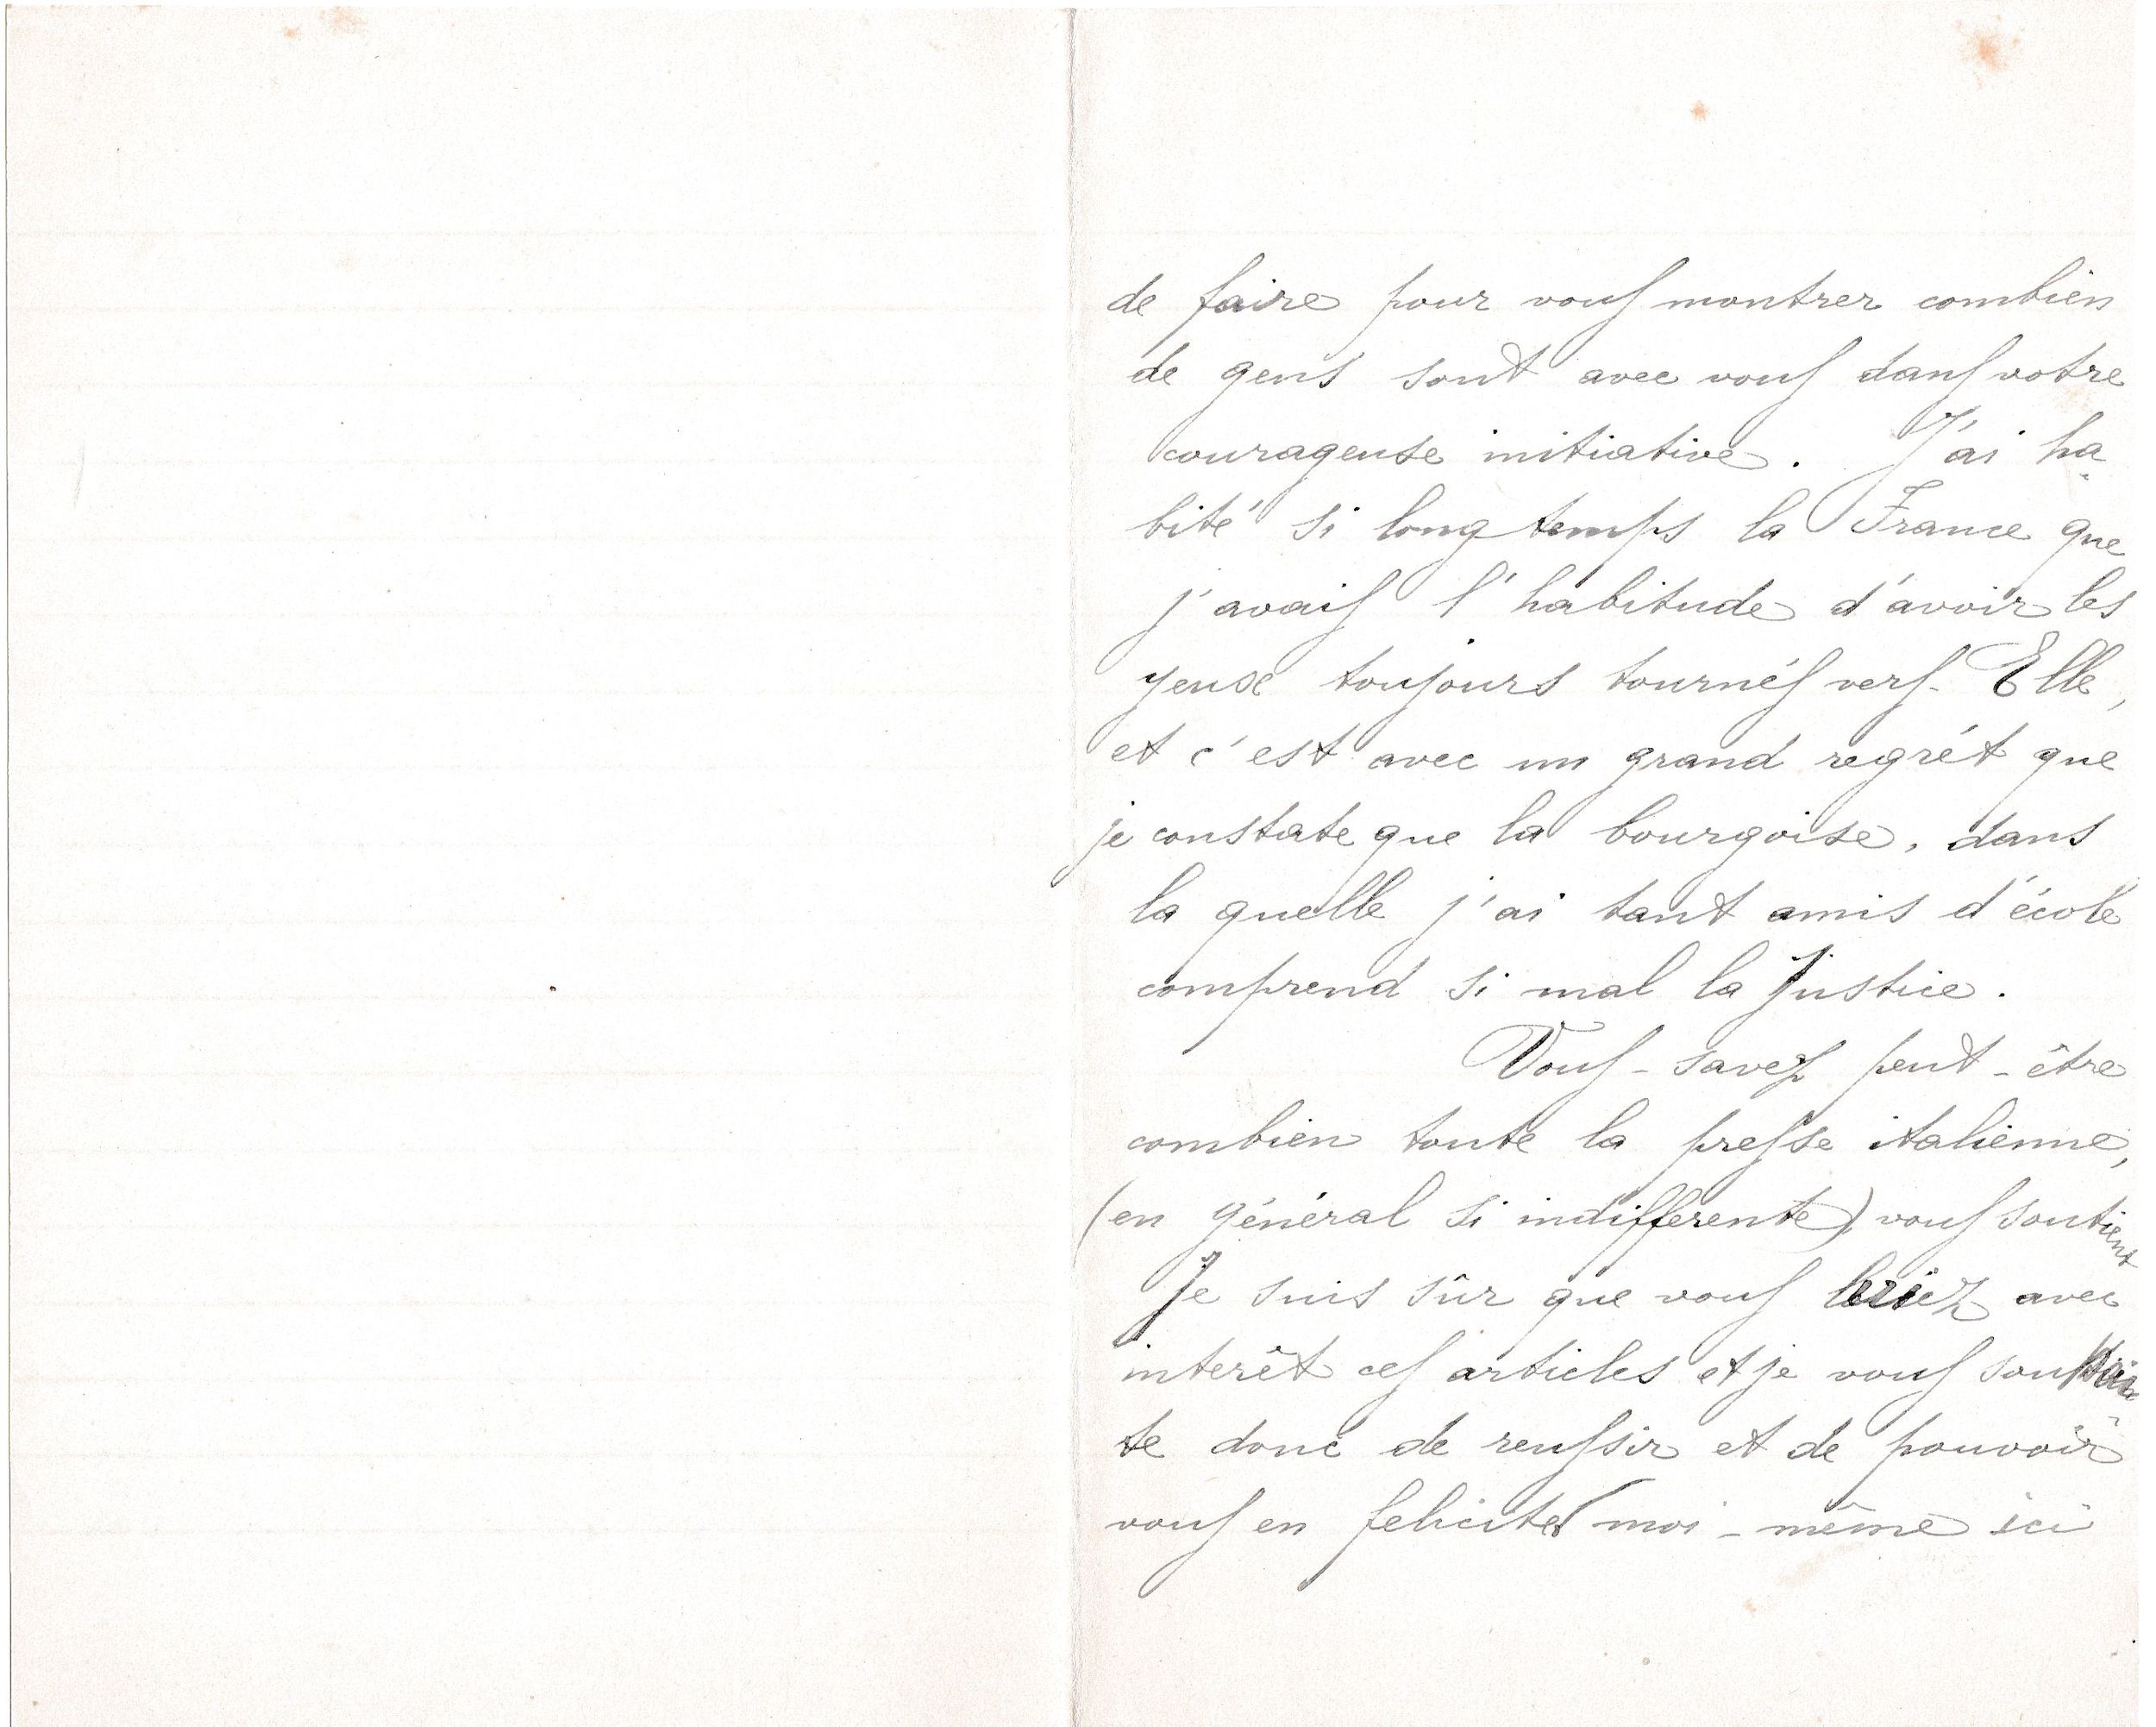 de faire pour vous montrer combien
de gens sont avec vous dans votre
courageuse initiative. J'ai ha-
bité si longtemps la France que
j'avais l'habitude d'avoir les
yeux toujours tournés vers Elle,
et c'est avec un grand regrét que
je constate que la bourgoise, dans
la quelle j'ai tant amis d'école
comprend si mal la Justice.
Vous-savez peut-être
combien toute la presse italienne,
(en général si indifferente) vous soutient
Je suis sûr que vous avec
interêt ces articles et je vous souhai
te donc de reussir et de pouvoir
vous en feliciter moi-même ici